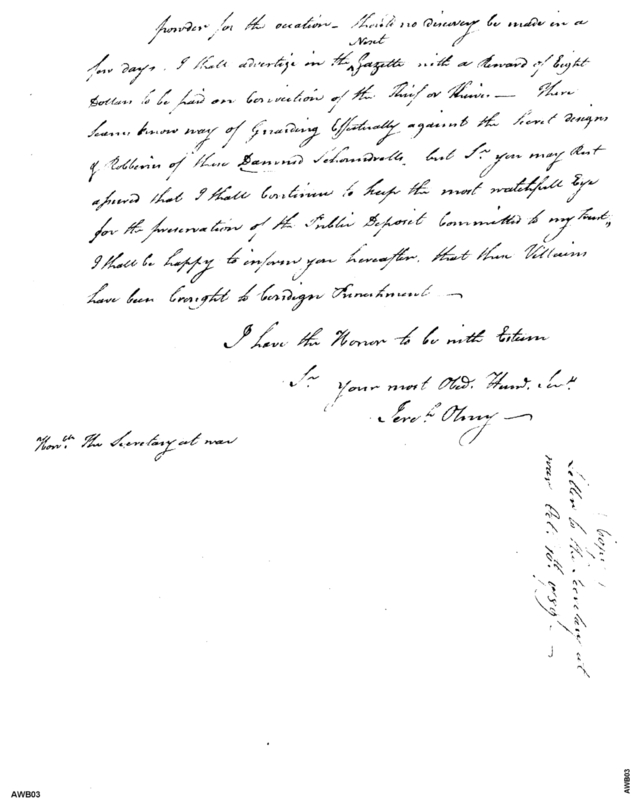 powder for the occation – Should no discovery be made in a
few days. I shall advertize in the Next Gazette with a Reward of Eight
Dollars to be paid on Conviction of the Thief or Thieves – There
seems know way of Guarding Effectually against the Secret designs
& Robberies of these Damned Schoundrells, but Sr. you may Rest
assured that I shall Continue to keep the most watchfull Eye
for the preservation of the Public Deposit Committed to my Trust,
I shall be happy to inform you hereafter, that these Villains
have been brought to Condign Punishment –
I have the Honor to be with Esteem
Sr. your most Obed. Hum. Servt.
Jereh. Olney –
Honble. The Secretary at war
Copy
Letter to the Secretary at
war Oct. 10th. 1789. –
AWB03
AWB03